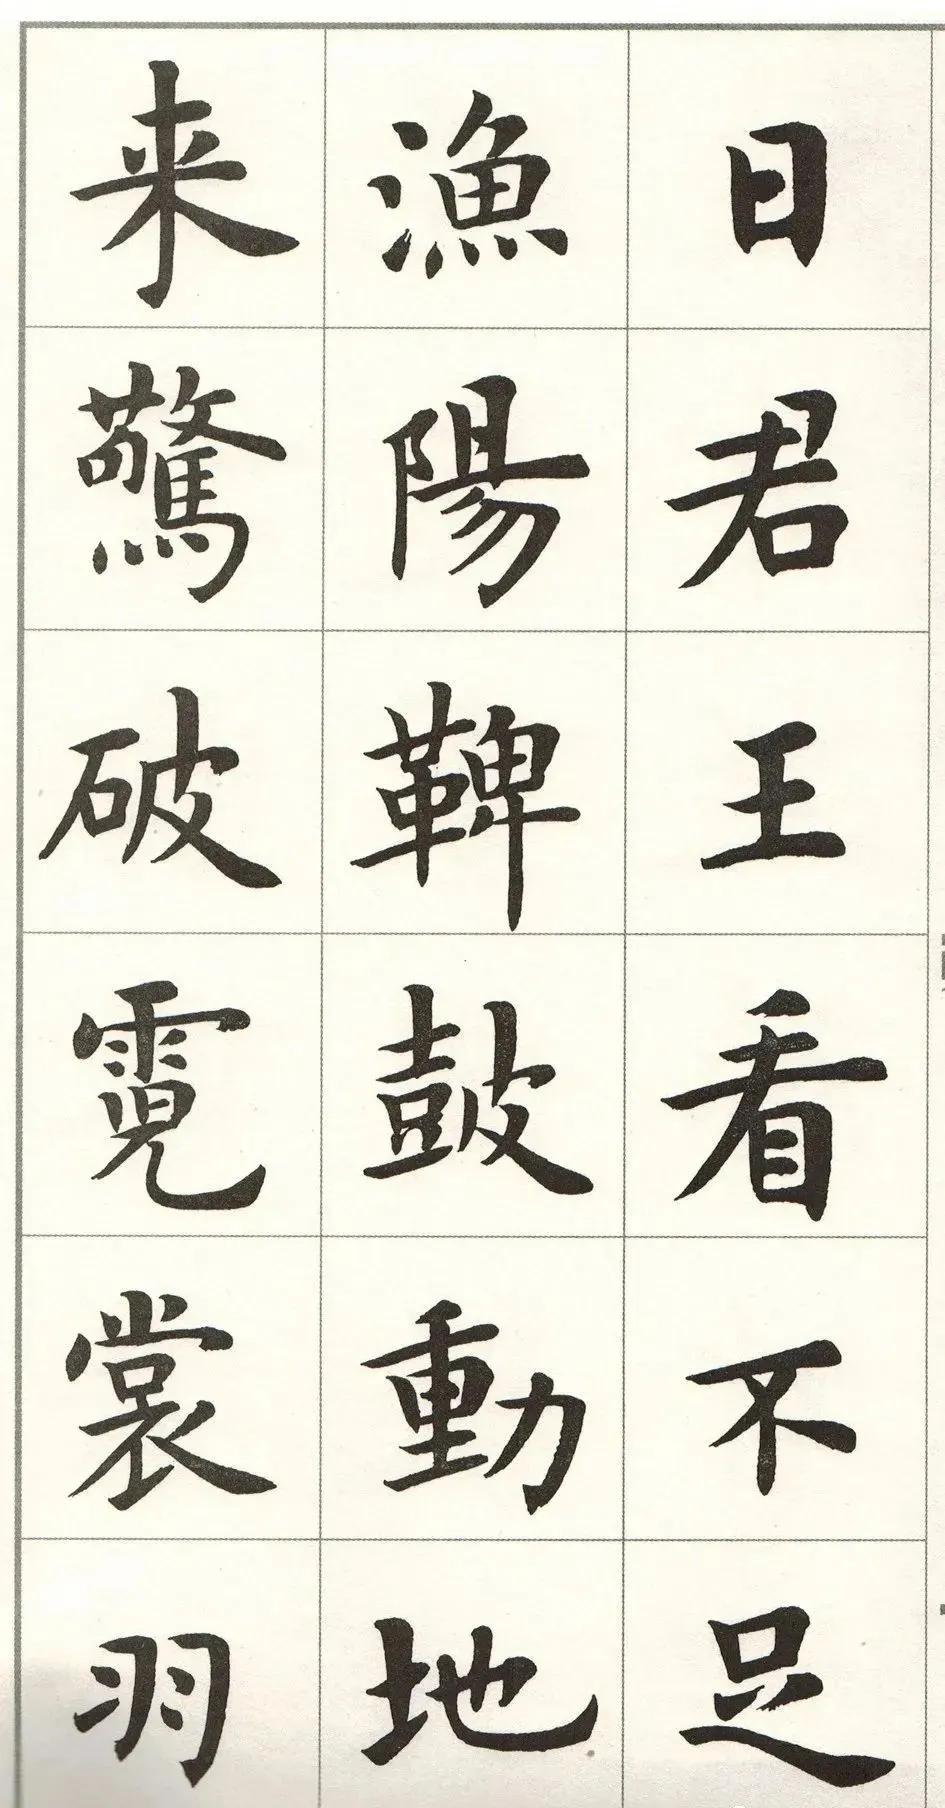 日君王看不足
漁陽鞞鼓動地
来驚破霓裳羽